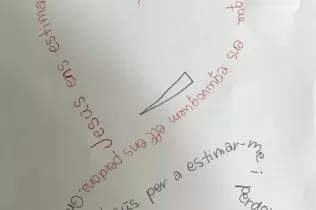 que ens equivoquem ell ens perdona. Gr
Jesús ens estima
per a estimar-me i perdo